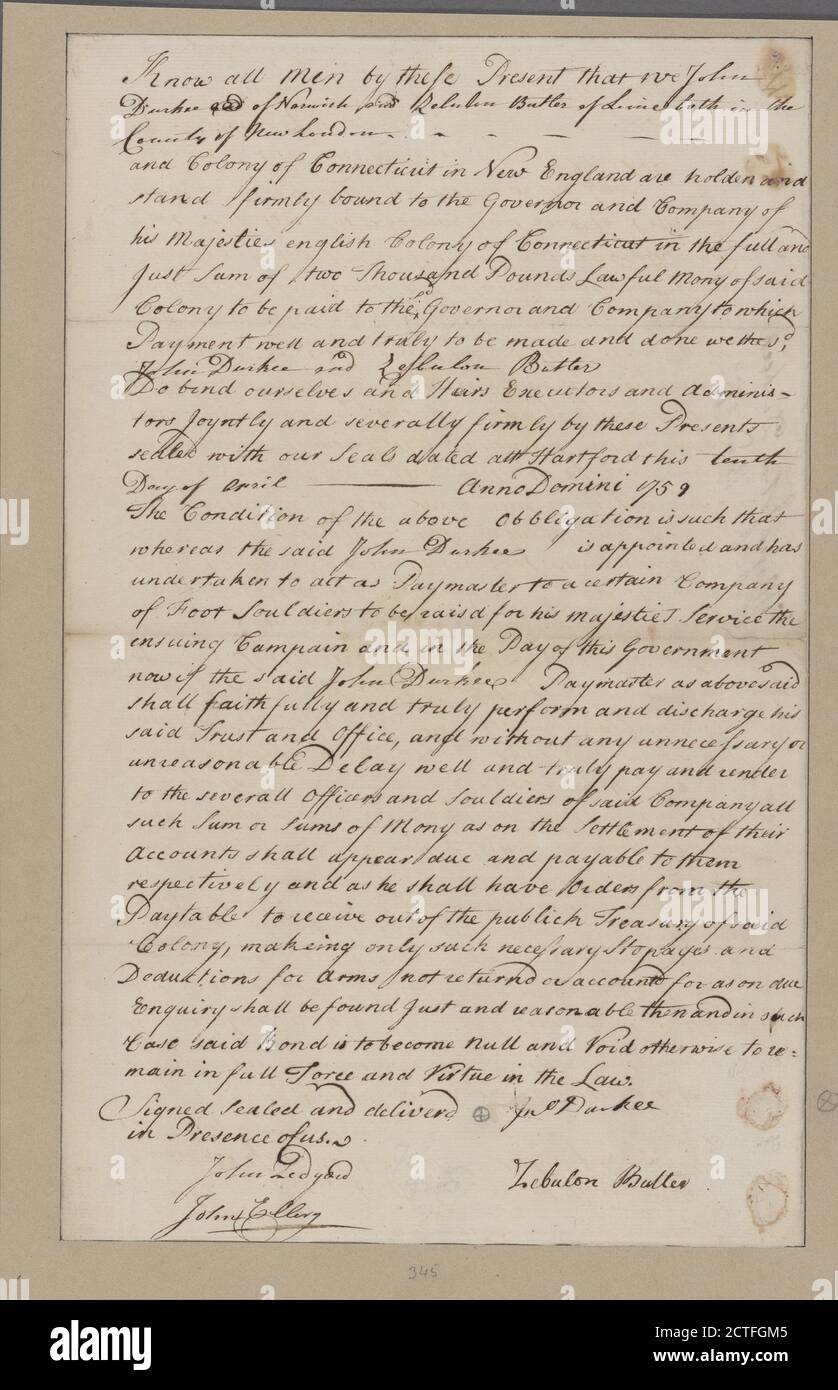 Know all men by these Present that we John
Durkee of Norwich and Zebulon Butler of Lime both in the
County of New London
and Colony of Connecticut in New England are holden and
stand firmly bound to the Governor and Company of
his Majesties english Colony of Connecticut in the full and
Just Sum of two Thousand Pounds Lawful Mony of said
Colony to be paid to the sd Governor and Company to which
Payment well and truly to be made and done we the sd,
John Durkee and Zebulon Butler
Do bind ourselves and Heirs Executors and Adminis-
tors Joyntly and severally firmly by these Presents
sealed with our Seals dated att Hartford this tenth
Day of April Anno Domini 1759
The Condition of the above Obbligation is such that
whereas the said John Durkee is appointed and has
undertaken to act as Paymaster to a certain Company
of Foot Souldiers to be raisd for his majesties Service the
ensuing Campain and in the Pay of this Government
now if the said John Durkee Paymaster as abovesaid
shall faithfully and truly perform and discharge his
said Trust and Office, and without any unnecessary or
unreasonable Delay well and truly pay and render
to the severall Officers and Souldiers of said Company all
such Sum or Sums of Mony as on the Settlement of their
Accounts shall appear due and payable to them
respectively and as he shall have Orders from the
Paytable to receive out of the publick Treasury of said
Colony, makeing only such necessary Stopages and
Deductions for Arms not returnd or accountd for as on due
Enquiry shall be found Just and reasonable then and in such
Case said Bond is to become Null and Void otherwise to re=
main in full Force and Virtue in the Law.
Signed sealed and deliverd Jno Durkee
in Presence of us
John Ledyard Zebulon Butler
John Ellery
345
alamy
Image ID: 2CTFGM5
www.alamy.com